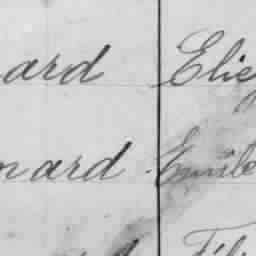 ard Elie
nard Emile